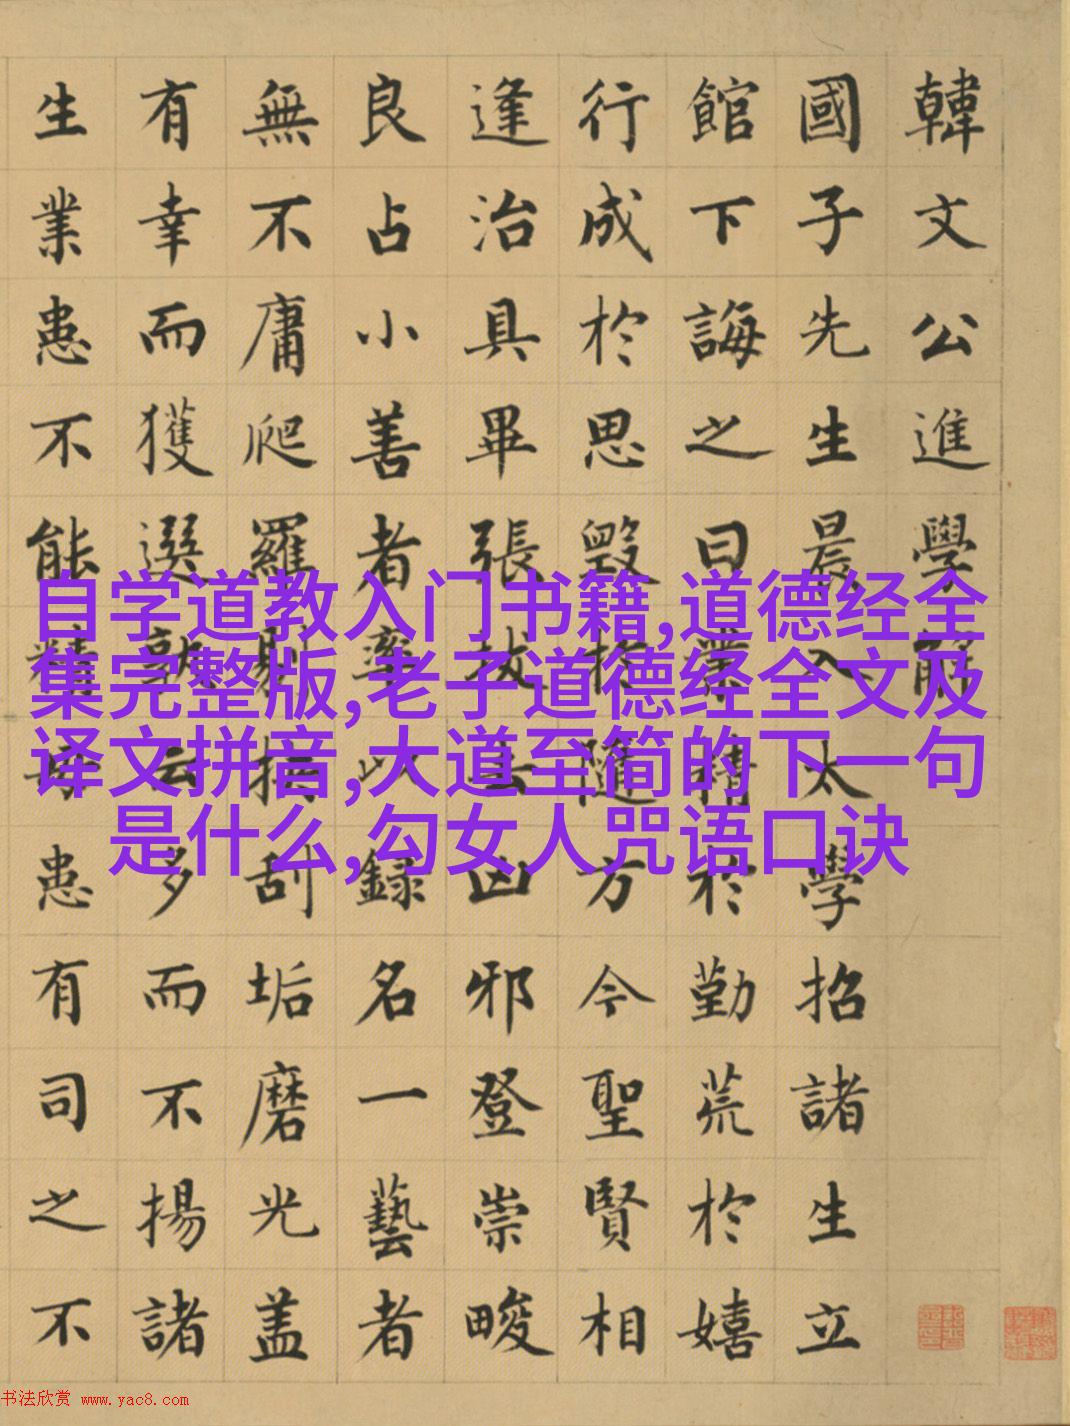 韓文公進學解
國子先生晨入太學招諸生立
館下誨之曰業精於勤荒於嬉
行成於思毀於隨方今聖賢相
逢治具畢張拔去凶邪登崇畯
良占小善者率以録名一藝者
無不庸爬羅剔抉刮垢磨光盖
有幸而獲選孰云多而不揚諸
生業患不能精毋患有司之不
自学道教入门书籍,道德经全
集完整版,老子道德经全文及
译文拼音,大道至简的下一句
是什么,勾女人咒语口诀
书法欣赏 www.yac8.com